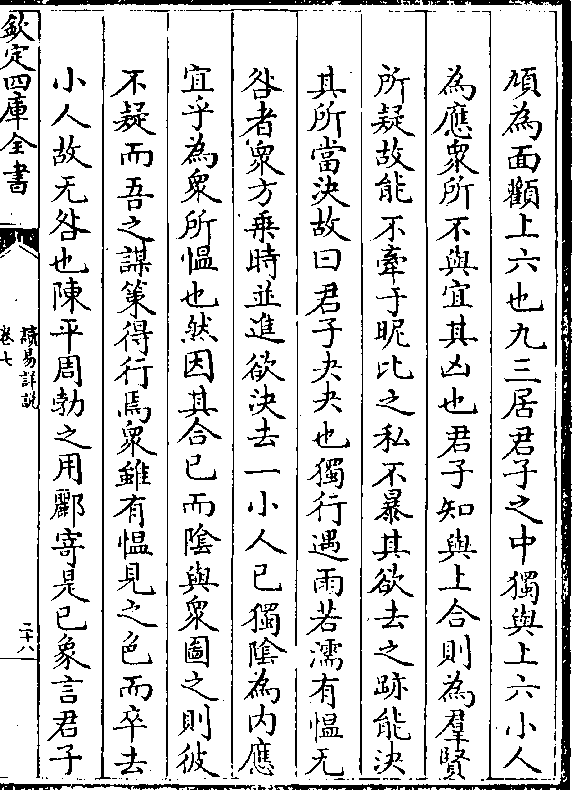 頄為面顴上六也九三居君子之中獨與上六小人
為應衆所不與宜其凶也君子知與上合則為羣賢
所疑故能不牽于昵比之私不暴其欲去之跡能決
其所當決故曰君子夬夬也獨行遇雨若濡有愠无
咎者衆方乗時並進欲決去一小人已獨隂為内應
宜乎為衆所愠也然因其合已而隂與衆圖之則彼
不疑而吾之謀策得行焉衆雖有愠見之色而卒去
小人故无咎也陳平周勃之用酈寄是已象言君子
欽定四庫全書
讀易詳說
卷七
二十八